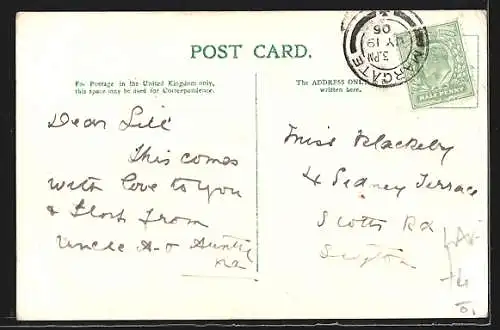 POST CARD.
For Postage in the United Kingdom only,
this space may be used for Correspondence.
The ADDRESS ONLY
written here.
MARGATE
3.PM
JY 19
05
HALFPENNY
Dear Lill
This comes
with love to you
& Flost from
Uncle A & Aunty
Miss Blackeby
4 Sidney Terrace
Scotts Rd